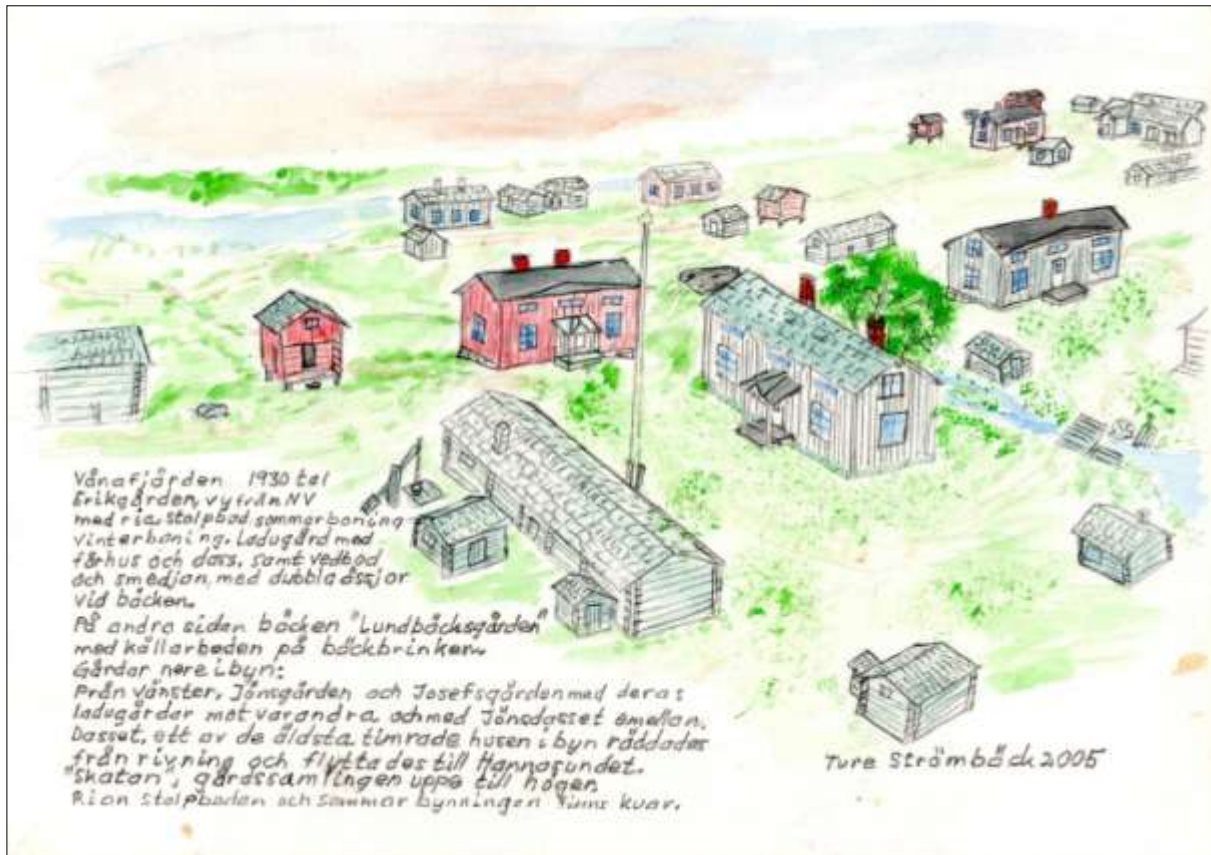 Vånafjärden 1930 tal
Erikgården, vy från NV
med ria, stolpbod sommarboning
vinterboning. Ladugård med
fårhus och dass, samt vedbod
och smedjan, med dubbla ässjor
vid bäcken.
På andra sidan bäcken "Lundbäcksgården"
med källarboden på bäckbrinken.
Gårdar nere i byn:
Från vänster, Jönsgården och Josefsgården med deras
ladugårdar mot varandra och med Jönsdasset emellan.
Dasset, ett av de äldsta timrade husen i byn räddades
från rivning och flyttades till Hannasundet.
"Skatan", gårdssamlingen uppe till höger.
Rian stolpboden och sommarbynningen finns kvar.
Ture Strömbäck 2005